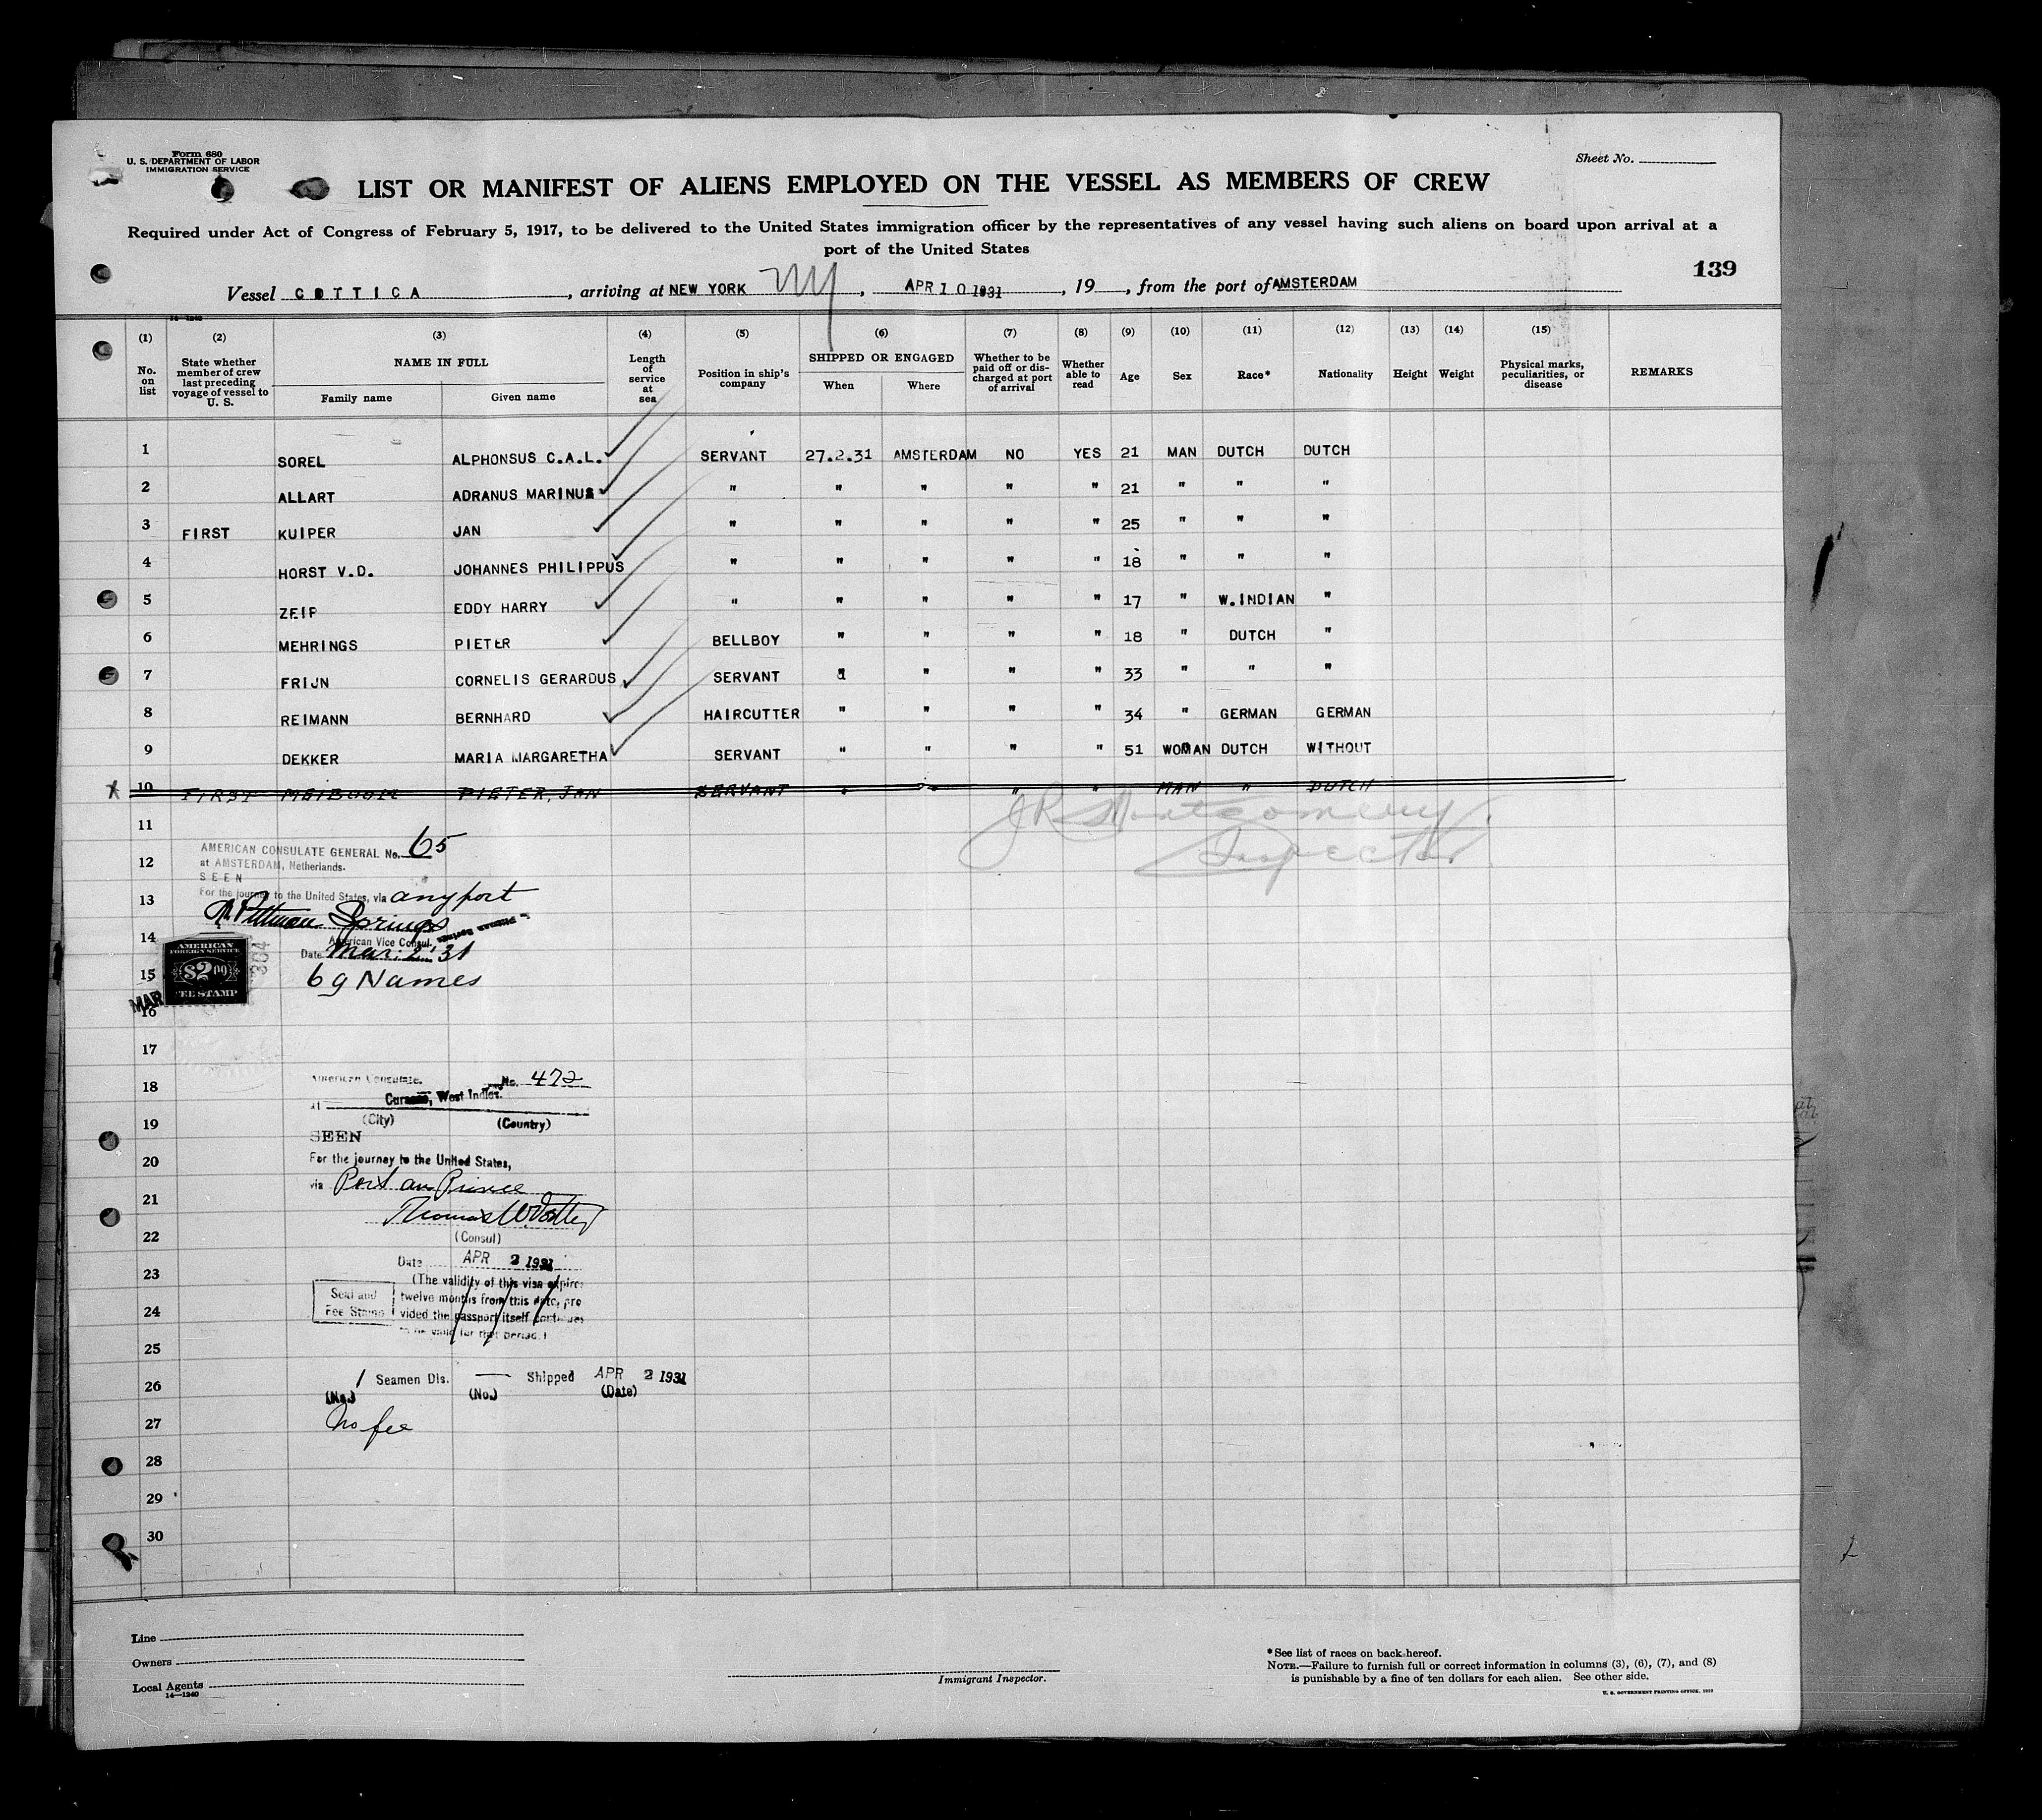 Form 680
U. S. DEPARTMENT OF LABOR
IMMIGRATION SERVICE
Sheet No.
LIST OR MANIFEST OF ALIENS EMPLOYED ON THE VESSEL AS MEMBERS OF CREW
Required under Act of Congress of February 5, 1917, to be delivered to the United States immigration officer by the representatives of any vessel having such aliens on board upon arrival at a
port of the United States
139
Vessel COTTICA, arriving at NEW YORK NY, APR 10 1931, 19, from the port of AMSTERDAM
(1) (2) (3) (4) (5) (6) (7) (8) (9) (10) (11) (12) (13) (14) (15)
No. on list
State whether member of crew last preceding voyage of vessel to U. S.
NAME IN FULL
Family name Given name
Length of service at sea
Position in ship's company
SHIPPED OR ENGAGED
When Where
Whether to be paid off or discharged at port of arrival
Whether able to read
Age
Sex
Race*
Nationality
Height
Weight
Physical marks, peculiarities, or disease
REMARKS
1 SOREL ALPHONSUS C.A.L. SERVANT 27.2.31 AMSTERDAM NO YES 21 MAN DUTCH DUTCH
2 ALLART ADRANUS MARINUS " " " " " 21 " " "
3 FIRST KUIPER JAN " " " " " 25 " " "
4 HORST V.D. JOHANNES PHILIPPUS " " " " " 18 " " "
5 ZEIP EDDY HARRY " " " " " 17 " W.INDIAN "
6 MEHRINGS PIETER BELLBOY " " " " 18 " DUTCH "
7 FRIJN CORNELIS GERARDUS SERVANT " " " 33 " " "
8 REIMANN BERNHARD HAIRCUTTER " " " " 34 " GERMAN GERMAN
9 DEKKER MARIA MARGARETHA SERVANT " " " " 51 WOMAN DUTCH WITHOUT
x 10 FIRST MEIBOOM PIETER, JAN SERVANT " " MAN " DUTCH
J R Montgomery
Inspector
11
12
13
14
15
16
17
18
19
20
21
22
23
24
25
26
27
28
29
30
AMERICAN CONSULATE GENERAL No. 65
at AMSTERDAM, Netherlands.
SEEN
For the journey to the United States, via any port
Pittman Springs
American Vice Consul.
Date Mar. 2 '31
69 Names
AMERICAN
FOREIGN SERVICE
$2.00
FEE STAMP
304
MAR
American Consulate, No. 472
at Curacao, West Indies.
(City) (Country)
SEEN
For the journey to the United States,
via Port au Prince
Thomas W.
(Consul)
Date APR 2 1931
(The validity of this visa expires
twelve months from this date, pro
vided the passport itself continues
to be valid for that period.)
Seal and
Fee Stamp
1 Seamen Dis. — Shipped APR 2 1931
(No.) (No.) (Date)
No fee
Line
Owners
Local Agents
14—1240
Immigrant Inspector.
*See list of races on back hereof.
NOTE.—Failure to furnish full or correct information in columns (3), (6), (7), and (8)
is punishable by a fine of ten dollars for each alien. See other side.